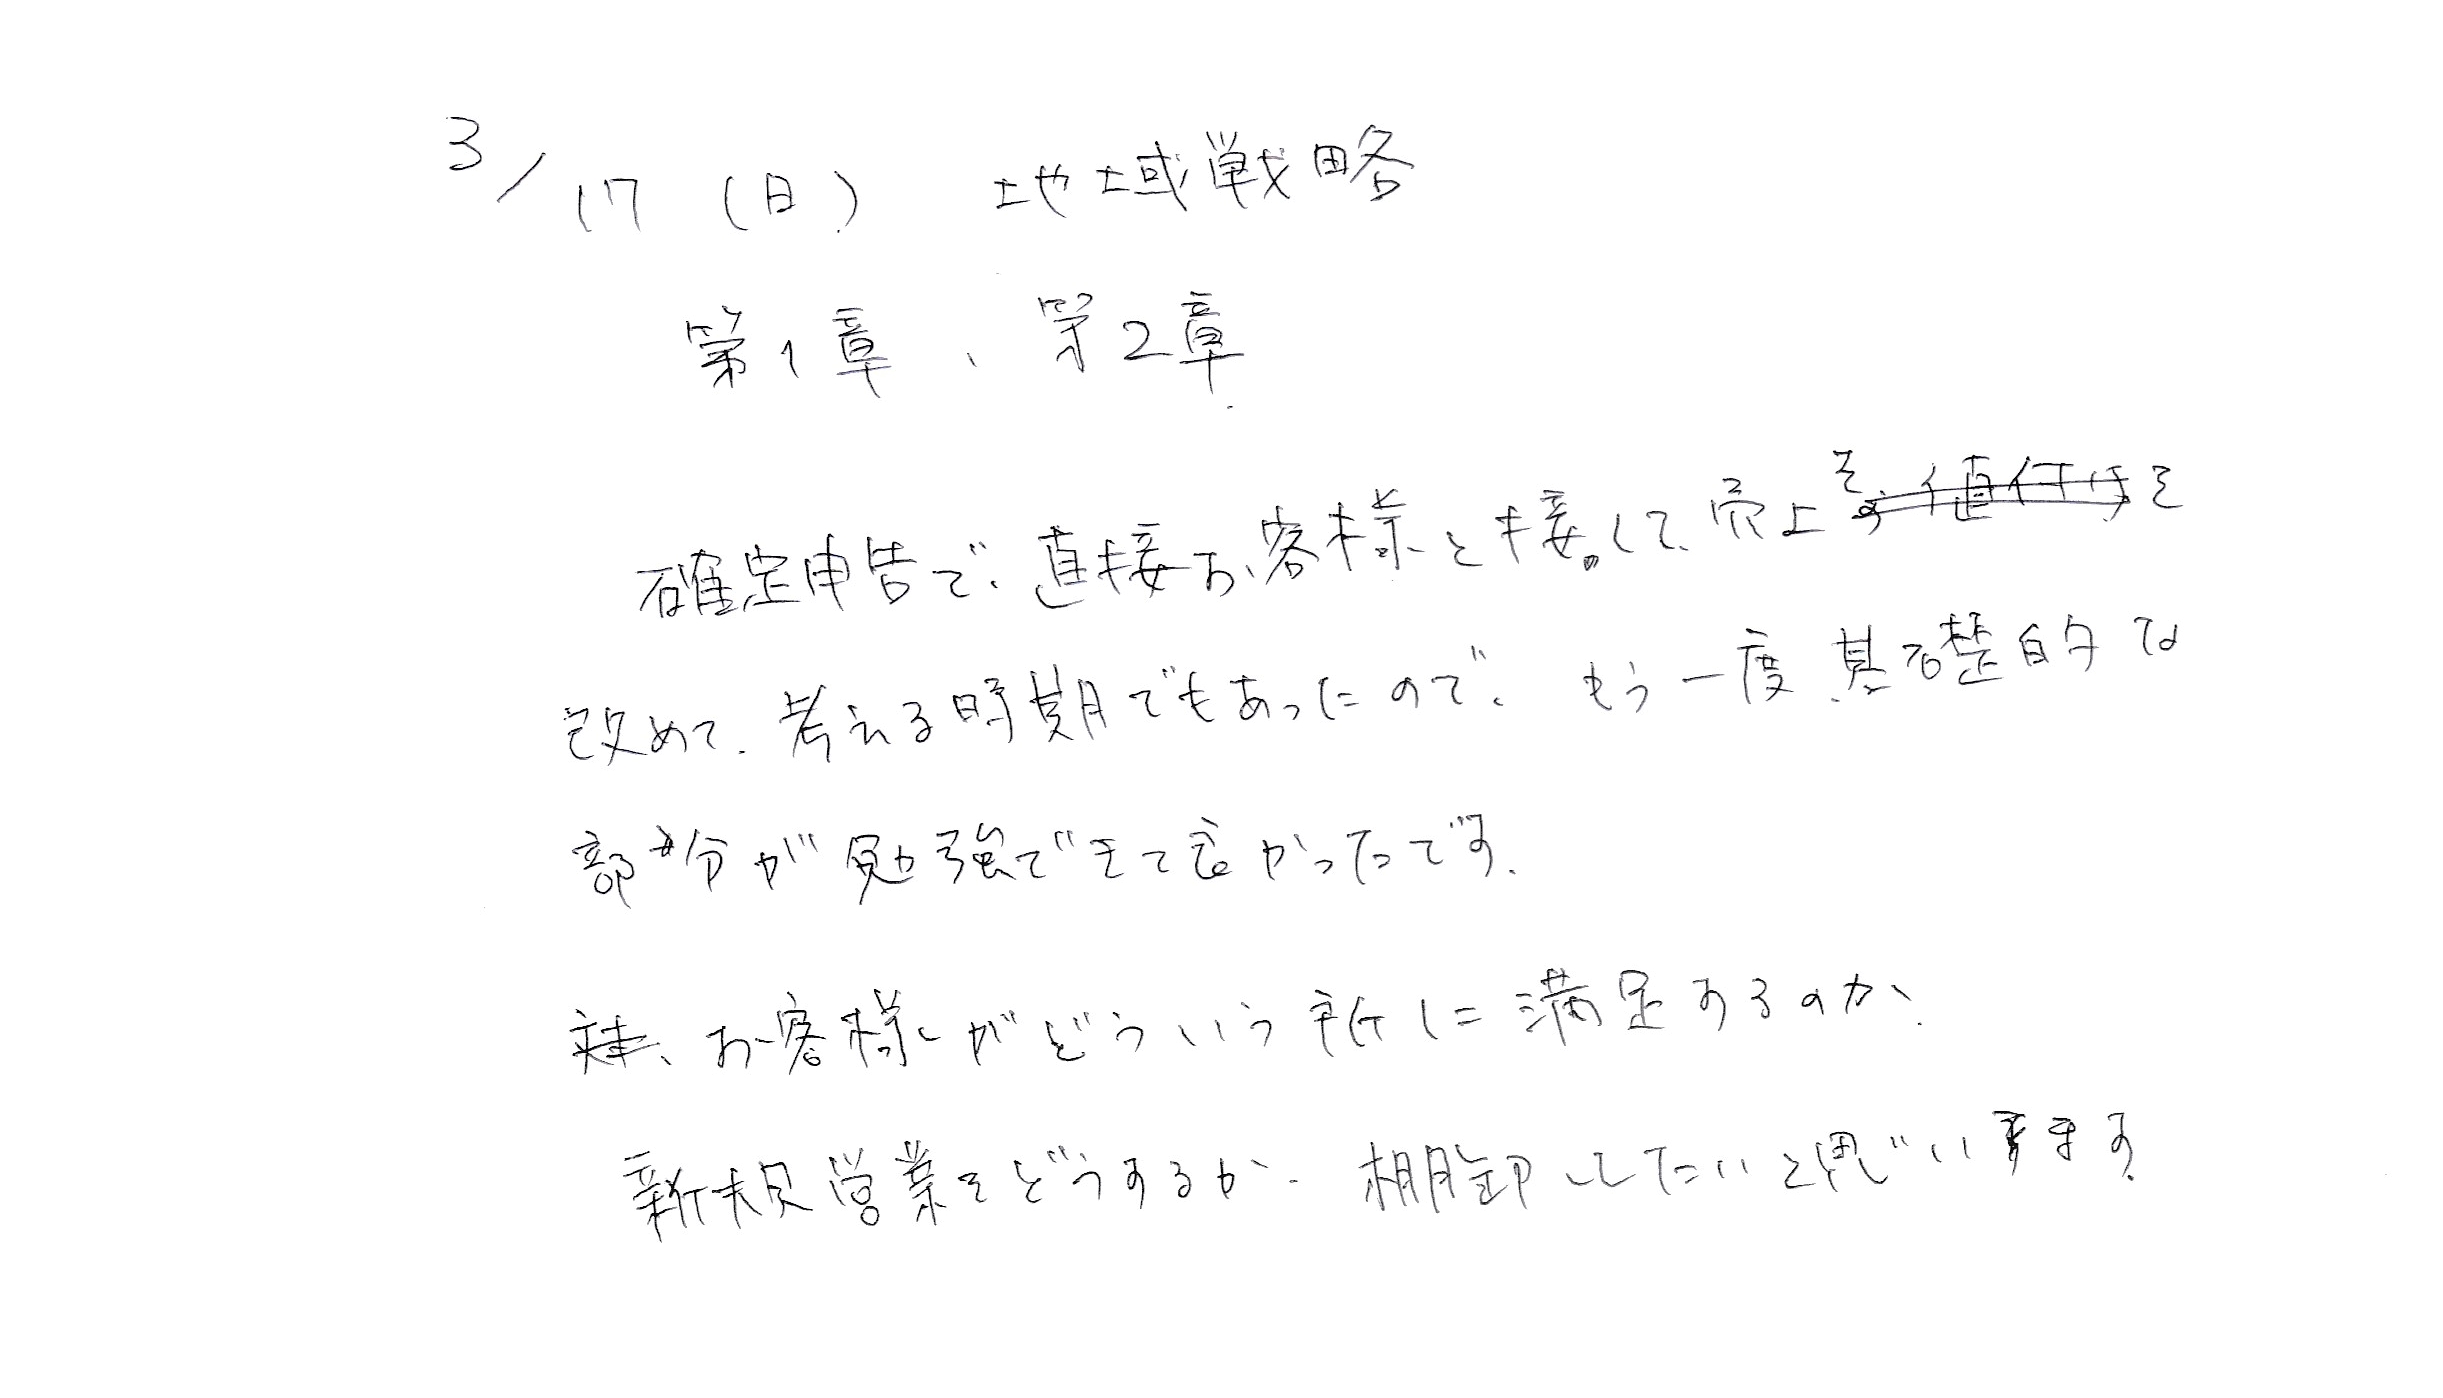 3/17(日) 地域戦略
第1章、第2章
確定申告で、直接お客様と接して、売上を
改めて、考える時期でもあったので、もう一度基礎的な
部分が勉強できて良かったです。
お客様がどういう所に満足するのか、
新規営業をどうするか、棚卸してたいと思います